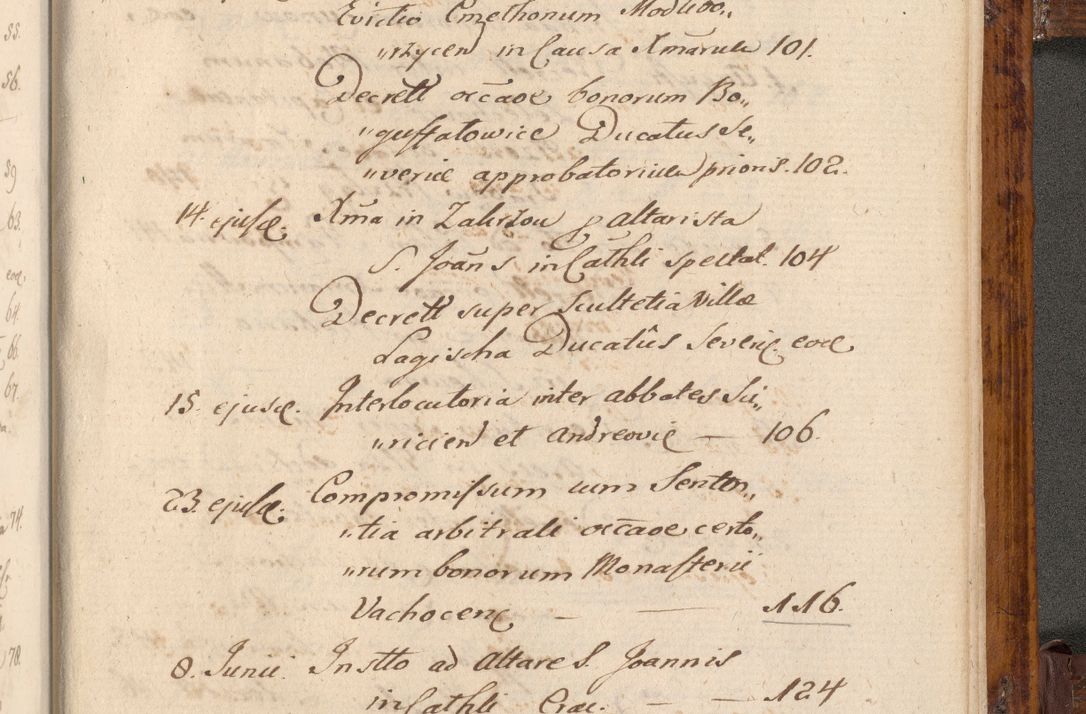 55.
56.
59
63.
eod.
64.
66.
67.
74.
78.
Evictio Cmethonum Modlibo„
„rzycen in Causa Xmarum 101.
Decrett occaoe bonorum Bo„
„guffatowice Ducatus Se„
„veriæ approbatorium prioris. 102.
14. ejusd. Xma in Zakrzou p Altarista
S. Joans in Cathli spectat. 104
Decrett super Scultetia Villæ
Lagischa Ducatûs Severiæ eod.
15. ejusd. Interlocutoria inter abbates Su„
„riciens et Andreovie — 106.
23. ejusd. Compromissum cum Senten„
„tia arbitrali occaoe certo„
„rum bonorum Monasterii
Vachocen — — 116.
8. Junii. Instto ad Altare S. Joannis
in Cathli Crac. — — 124